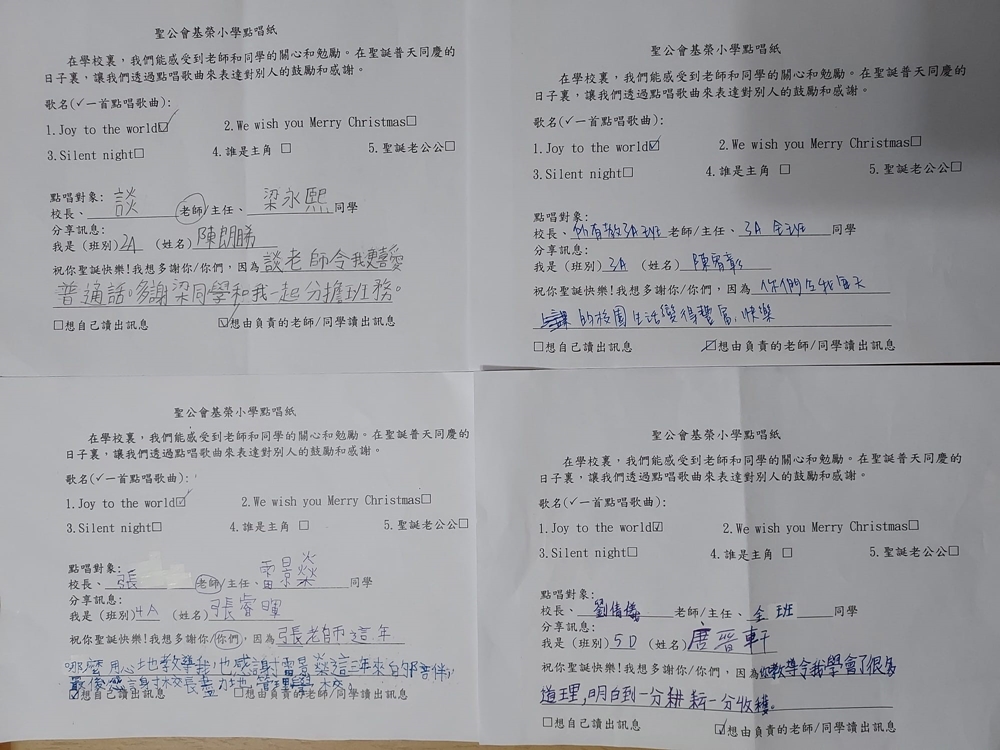 聖公會基榮小學點唱紙
在學校裏，我們能感受到老師和同學的關心和勉勵。在聖誕普天同慶的
日子裏，讓我們透過點唱歌曲來表達對別人的鼓勵和感謝。
歌名(✓一首點唱歌曲):
1.Joy to the world☑ 2.We wish you Merry Christmas□
3.Silent night□ 4.誰是主角 □ 5.聖誕老公公□
點唱對象:
校長、談 老師/主任、梁永熙 同學
分享訊息:
我是 (班別)2A (姓名)陳朗晞
祝你聖誕快樂!我想多謝你/你們，因為談老師令我更喜愛
普通話。多謝梁同學和我一起分擔班務。
□想自己讀出訊息 ☑想由負責的老師/同學讀出訊息
聖公會基榮小學點唱紙
在學校裏，我們能感受到老師和同學的關心和勉勵。在聖誕普天同慶的
日子裏，讓我們透過點唱歌曲來表達對別人的鼓勵和感謝。
歌名(✓一首點唱歌曲):
1.Joy to the world☑ 2.We wish you Merry Christmas□
3.Silent night□ 4.誰是主角 □ 5.聖誕老公公□
點唱對象:
校長、所有教3A班 老師/主任、3A 全班 同學
分享訊息:
我是 (班別) 3A (姓名) 陳宥彰
祝你聖誕快樂!我想多謝你/你們，因為 你們令我每天
的校園生活變得豐富、快樂
□想自己讀出訊息 ☑想由負責的老師/同學讀出訊息
聖公會基榮小學點唱紙
在學校裏，我們能感受到老師和同學的關心和勉勵。在聖誕普天同慶的
日子裏，讓我們透過點唱歌曲來表達對別人的鼓勵和感謝。
歌名(✓一首點唱歌曲):
1.Joy to the world☑ 2.We wish you Merry Christmas□
3.Silent night□ 4.誰是主角 □ 5.聖誕老公公□
點唱對象:
校長、張 老師/主任、雷景燊 同學
分享訊息:
我是 (班別)4A (姓名)張睿暉
祝你聖誕快樂!我想多謝你/你們，因為張老師這一年
那麼用心地教導我，也感謝雷景燊這三年來的陪伴，
最後感謝校長盡力地管理學校。
☑想自己讀出訊息 □想由負責的老師/同學讀出訊息
聖公會基榮小學點唱紙
在學校裏，我們能感受到老師和同學的關心和勉勵。在聖誕普天同慶的
日子裏，讓我們透過點唱歌曲來表達對別人的鼓勵和感謝。
歌名(✓一首點唱歌曲):
1.Joy to the world☑ 2.We wish you Merry Christmas□
3.Silent night□ 4.誰是主角 □ 5.聖誕老公公□
點唱對象:
校長、劉倩 老師/主任、全班 同學
分享訊息:
我是 (班別)5D (姓名)唐晉軒
祝你聖誕快樂!我想多謝你/你們，因為您教導令我學會了很多
道理,明白到一分耕耘一分收穫。
□想自己讀出訊息 ☑想由負責的老師/同學讀出訊息